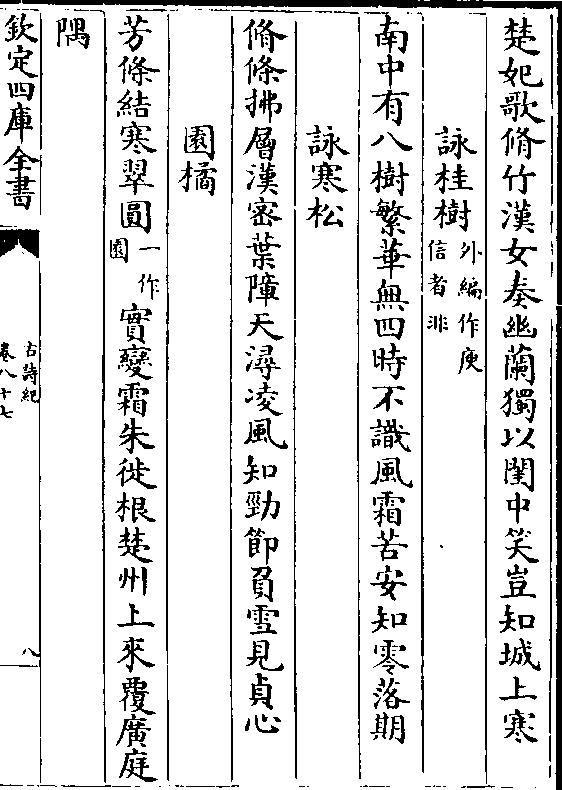 楚妃歌脩竹漢女奏幽蘭獨以閨中笑豈知城上寒
詠桂樹外編作庾信者非
南中有八樹繁華無四時不識風霜苦安知零落期
詠寒松
脩條拂層漢密葉障天潯凌風知勁節負雪見貞心
園橘
芳條結寒翠圓一作園實變霜朱徙根楚州上來覆廣庭
隅
欽定四庫全書
古詩紀
卷八十七
八